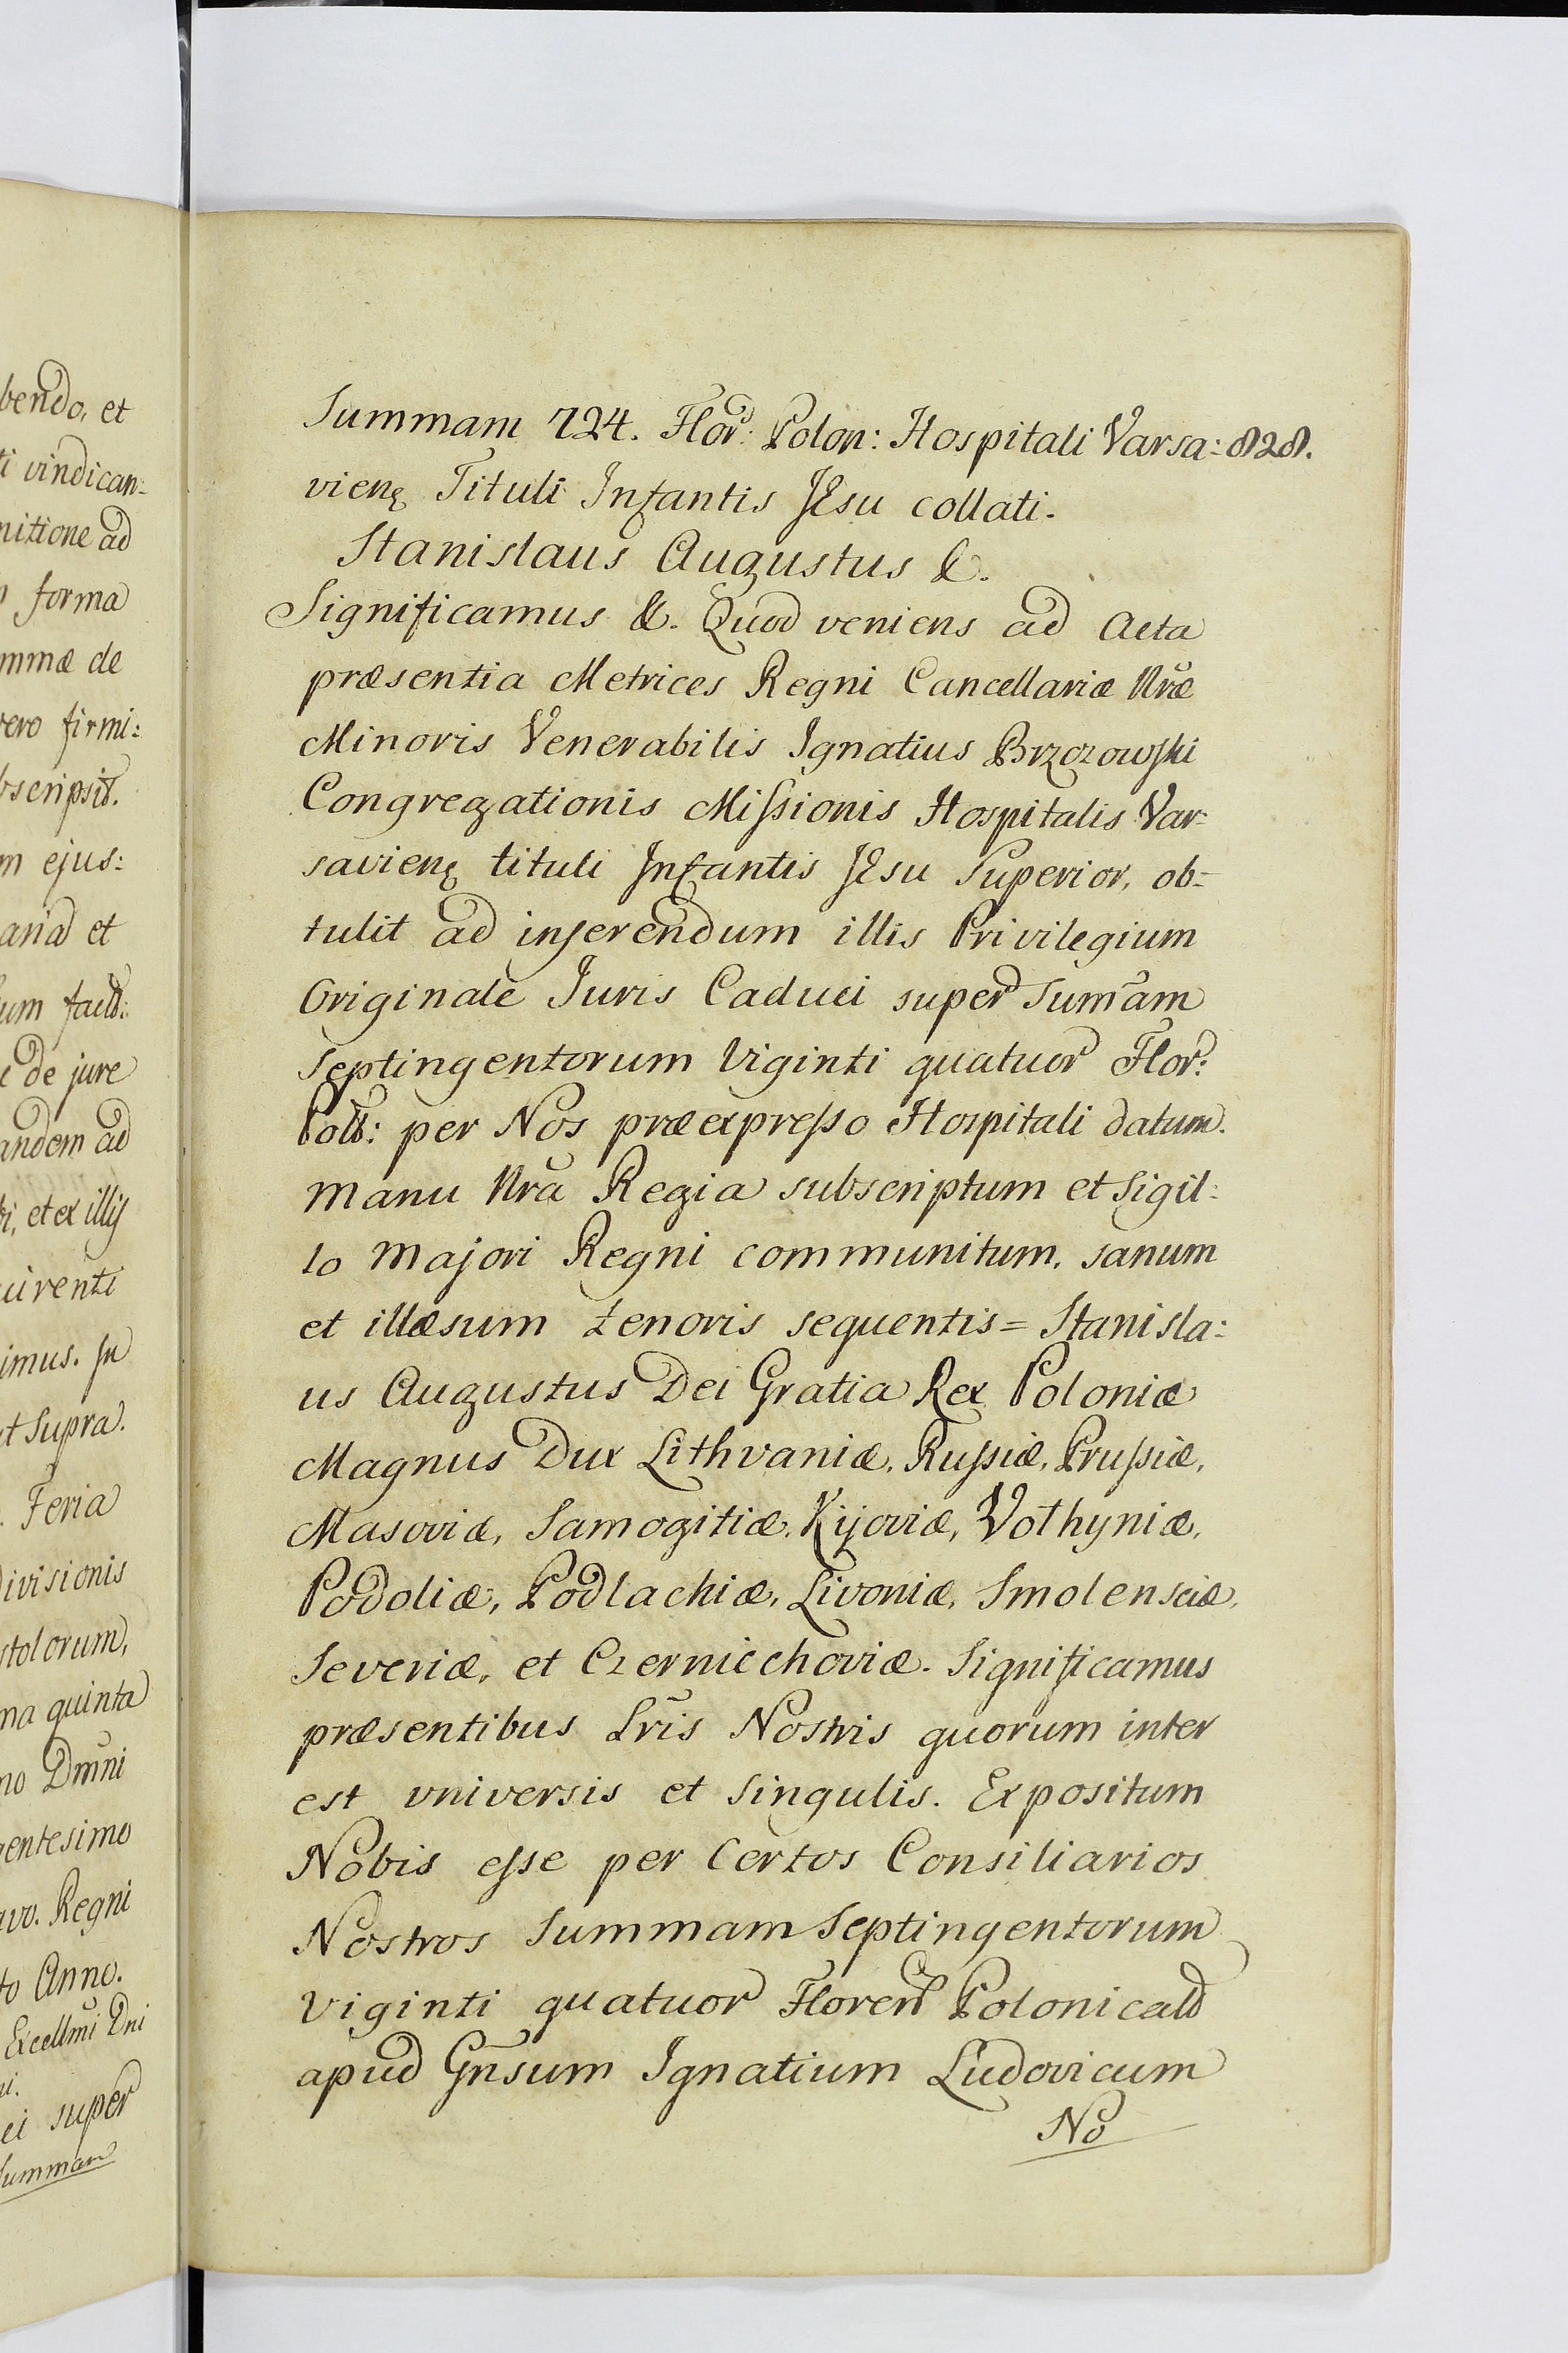 bendo, et
ti vindican:
nitione ad
forma
mmæ de
vero firmi:
bscripsit.
m ejus:
aria et
um fact:
e de jure
andem ad
bi, et ex illis
uirenti
imus. In
ut Supra.
Feria
divisionis
stolorum,
ma quinta
no Dm̃ni
gentesimo
avo. Regni
to Anno.
Excellm̃i Dni
ei super
Summam
Summam 724. Flor: Polon: Hospitali Varsa: 828.
vienę Tituli Infantis JEsu collati.
Stanislaus Augustus &.
Significamus &. Quod veniens ad Acta
præsentia Metrices Regni Cancellariæ Nr̃æ
Minoris Venerabilis Ignatius Brzozowski
Congregationis Missionis Hospitalis Var:
savienę tituli Infantis JEsu Superior, ob=
tulit ad inserendum illis Privilegium
Originale Juris Caduci super Sum̃am
Septingentorum Viginti quatuor Flor:
Pol: per Nos præexpresso Hospitali datum.
manu Nr̃a Regia subscriptum et Sigil:
lo majori Regni communitum, sanum
et illæsum tenoris sequentis = Stanisla:
us Augustus Dei Gratia Rex Poloniæ
Magnus Dux Lithvaniæ, Russiæ, Prussiæ,
Masoviæ, Samogitiæ, Kijoviæ, Volhyniæ,
Podoliæ, Podlachiæ, Livoniæ, Smolensciæ,
Severiæ, et Czerniechoviæ. Significamus
præsentibus Lr̃is Nostris quorum inter
est universis et singulis. Expositum
Nobis esse per Certos Consiliarios
Nostros Summam Septingentorum
viginti quatuor Floren Polonical
apud Gñsum Ignatium Ludovicum
No